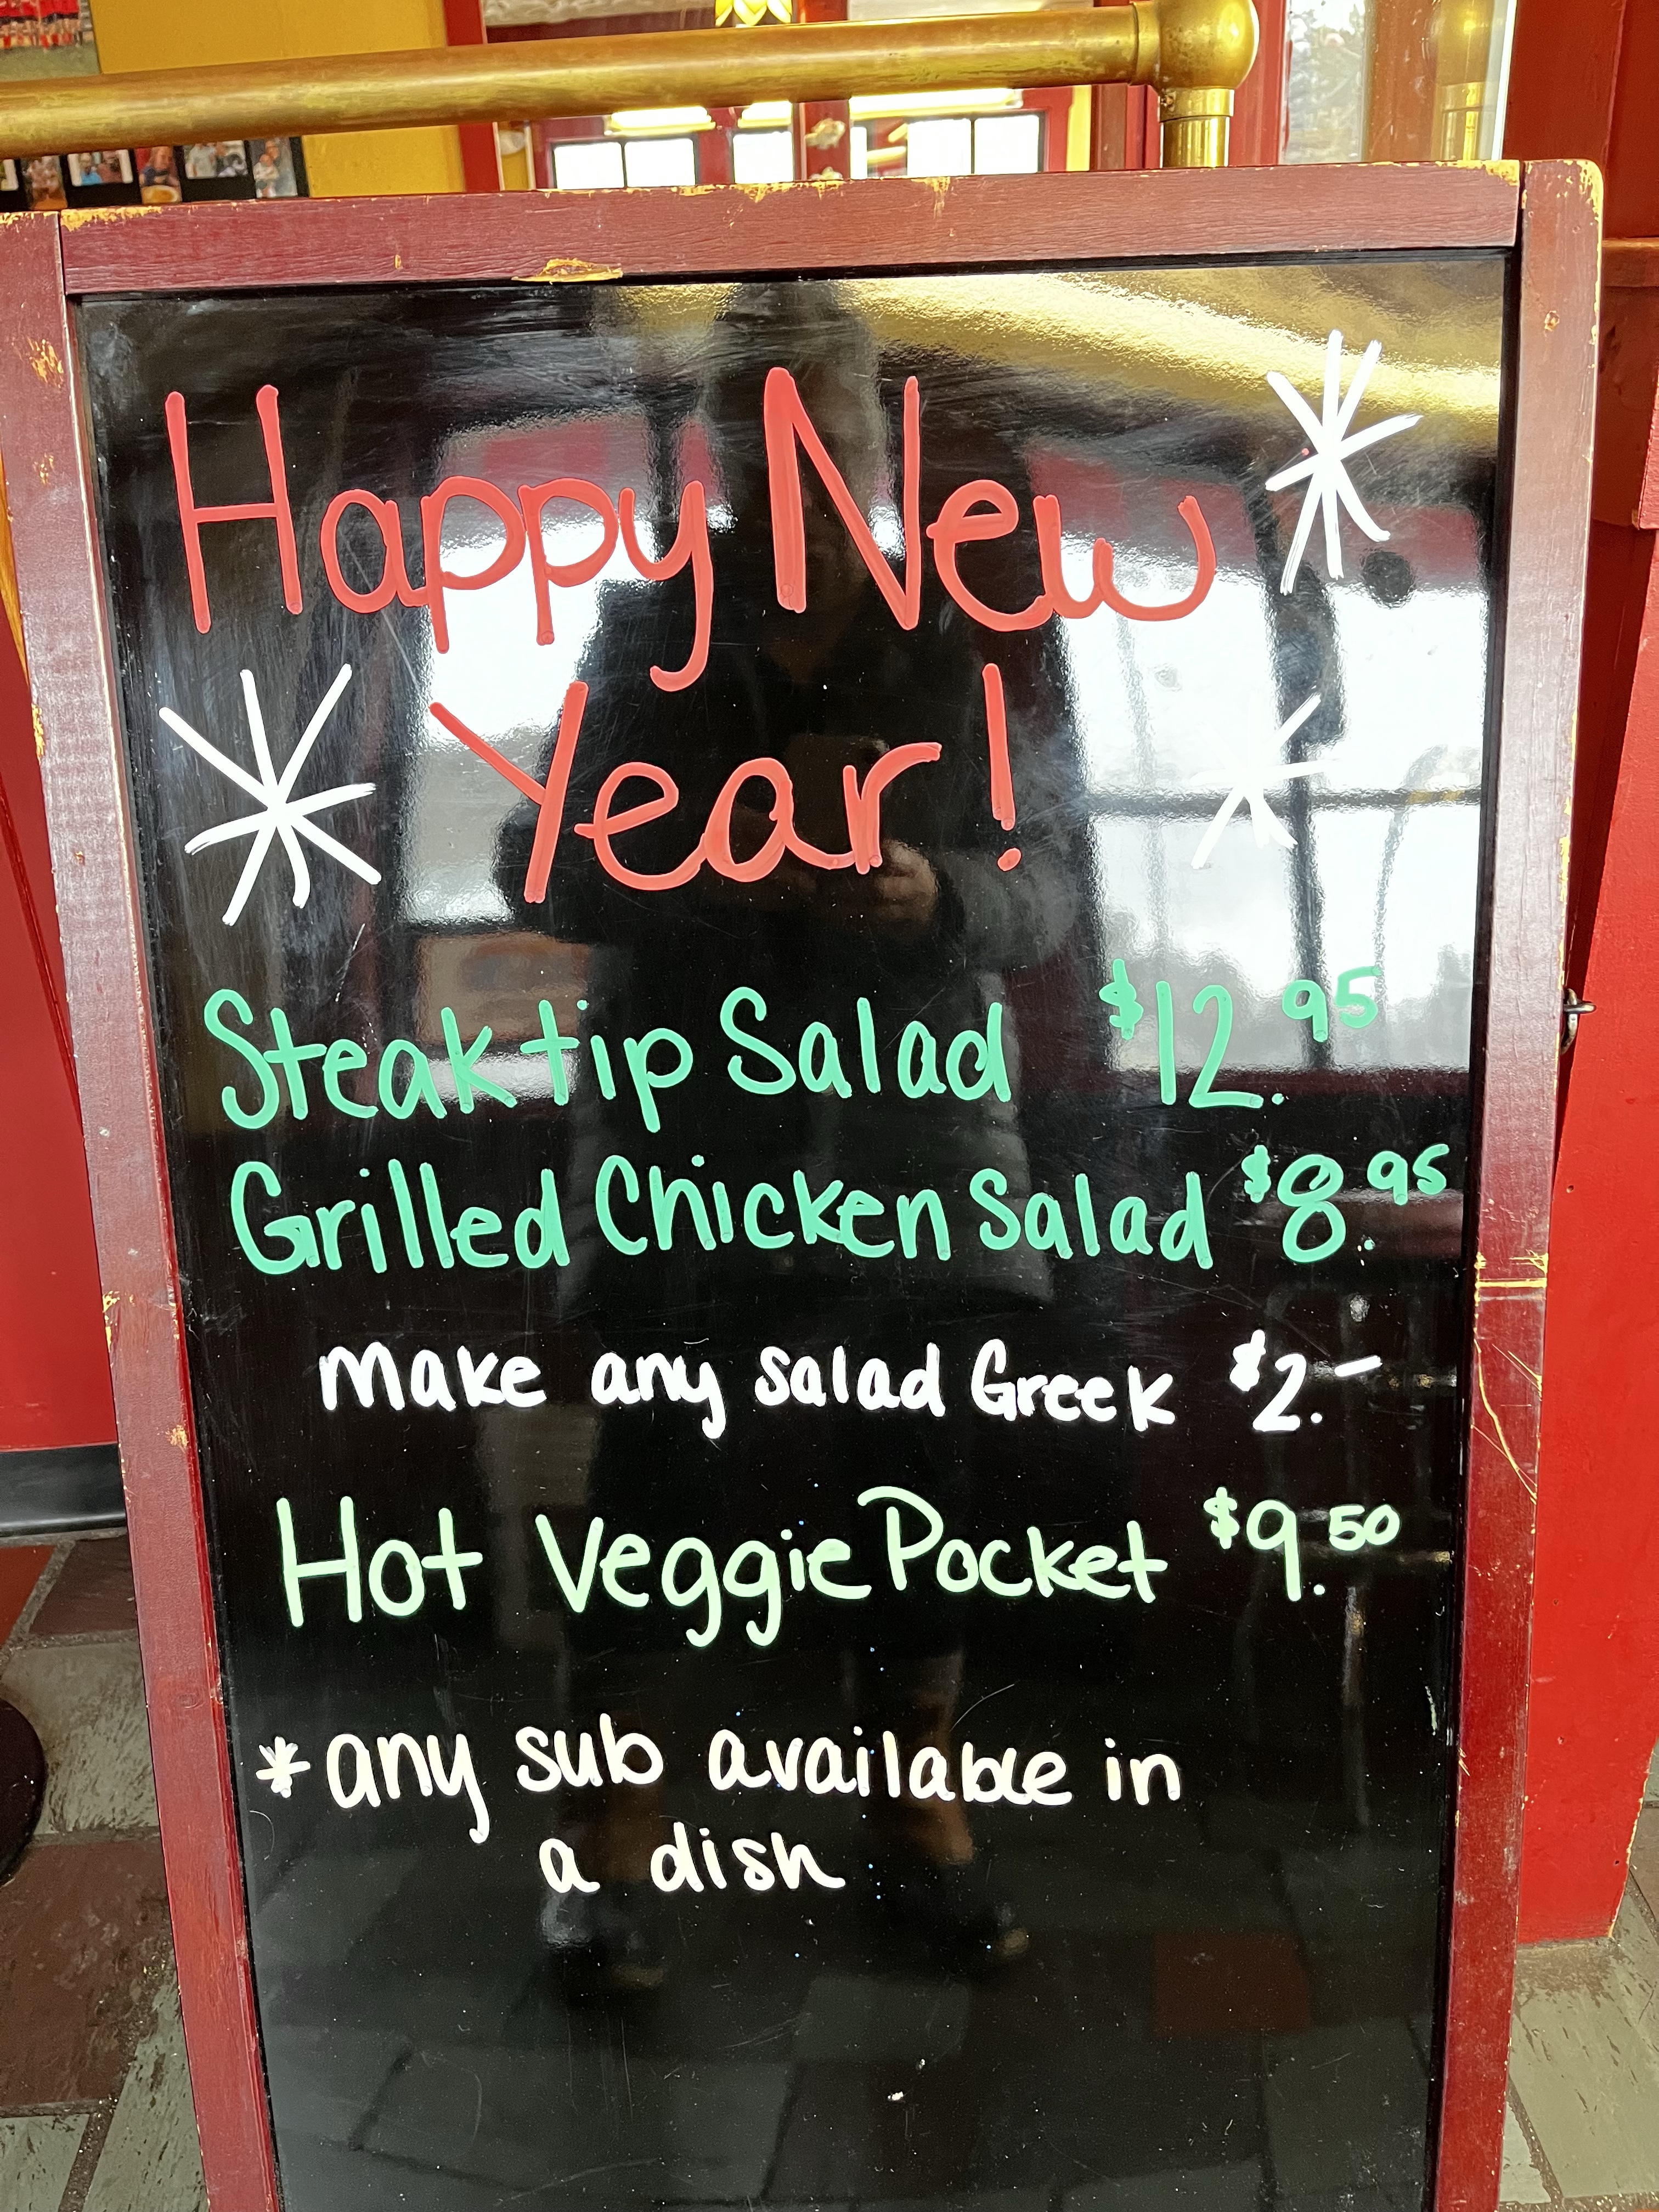 Happy New
Year!
Steak tip Salad $12.95
Grilled Chicken Salad $8.95
make any salad Greek $2.-
Hot Veggie Pocket $9.50
*any sub available in
a dish